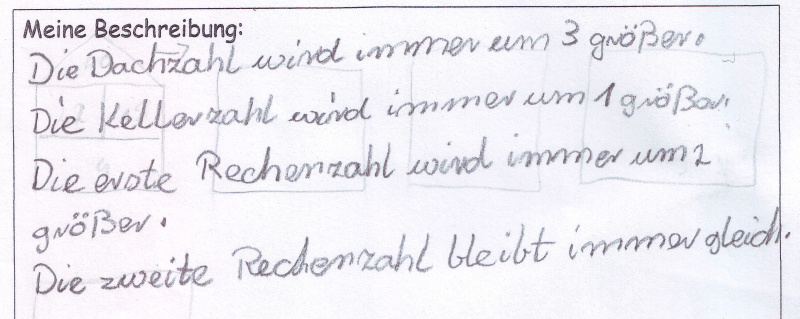 Meine Beschreibung:
Die Dachzahl wird immer um 3 größer.
Die Kellerzahl wird immer um 1 größer.
Die erste Rechenzahl wird immer um 2
größer.
Die zweite Rechenzahl bleibt immer gleich.